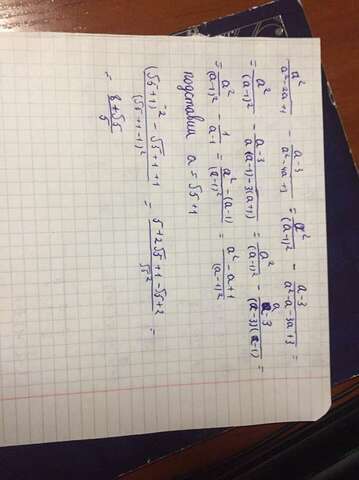 a²/(a²-2a+1) - (a-3)/(a²-4a+3) = a²/(a-1)² - (a-3)/(a²-a-3a+3) =
= a²/(a-1)² - (a-3)/(a(a-1)-3(a+1)) = a²/(a-1)² - (a-3)/((a-3)(a-1)) =
= a²/(a-1)² - 1/(a-1) = (a²-(a-1))/(a-1)² = (a²-a+1)/(a-1)²
подставим a = √5+1
((√5+1)² - √5+1+1)/(√5+1-1)² = (5+2√5+1-√5+2)/√5² =
= (8+√5)/5